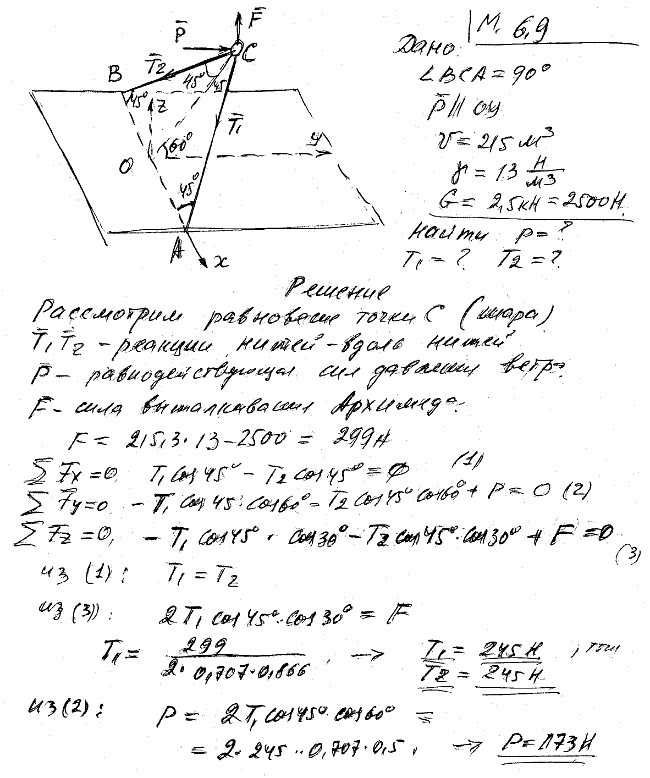 М. 6,9
Дано:
∠BCA = 90°
P̄ || oy
V = 215 м³
γ = 13 Н/м³
G = 2,5кН = 2500Н.
найти P = ?
T₁ = ? T₂ = ?
F̄
P̄
C
B
T̄₂
45°
45
45°
z
T̄₁
O
60°
y
45°
A
x
Решение
Рассмотрим равновесие точки C (шара)
T̄₁ T̄₂ - реакции нитей - вдоль нитей
P̄ - равнодействующая сил давления ветра.
F̄ - сила выталкивания Архимеда.
F = 215,3 · 13 - 2500 = 299Н
∑Fx = 0, T₁ cos45° - T₂ cos45° = 0 (1)
∑Fy = 0, - T₁ cos45° · cos60° - T₂ cos45° cos60° + P = 0 (2)
∑Fz = 0, - T₁ cos45° · cos30° - T₂ cos45° · cos30° + F = 0 (3)
из (1): T₁ = T₂
из (3): 2T₁ cos45° · cos30° = F
T₁ = 299 / 2 · 0,707 · 0,866 → T₁ = 245 Н
T₂ = 245 Н
из (2): P = 2T₁ cos45° cos60° =
= 2 · 245 · 0,707 · 0,5, → P = 173Н